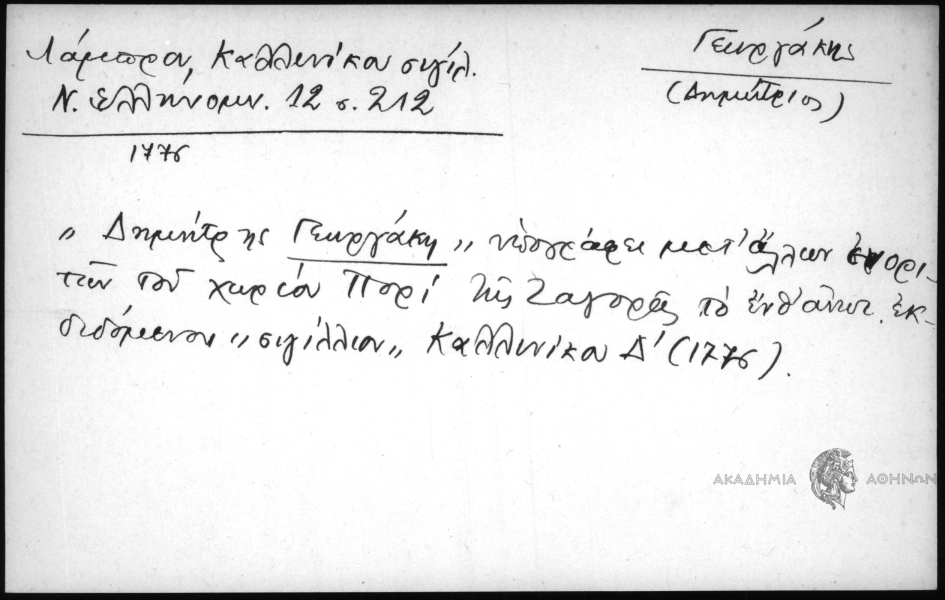 Λάμπρου, Καλλινίκου σιγίλ.
Ν. Ελληνομν. 12 σ. 212
1776
Γεωργάκης
(Δημήτριος)
„ Δημήτρης Γεωργάκη „ ὑπογράφει μετ' ἄλλων ἐνορι-
τῶν τοῦ χωρίου Πορί τῆς Ζαγορᾶς τὸ ἐνθ' ἀνωτ. ἐκ-
διδόμενον „σιγίλλιον„ Καλλινίκου Δ' (1776).
ΑΚΑΔΗΜΙΑ ΑΘΗΝΩΝ